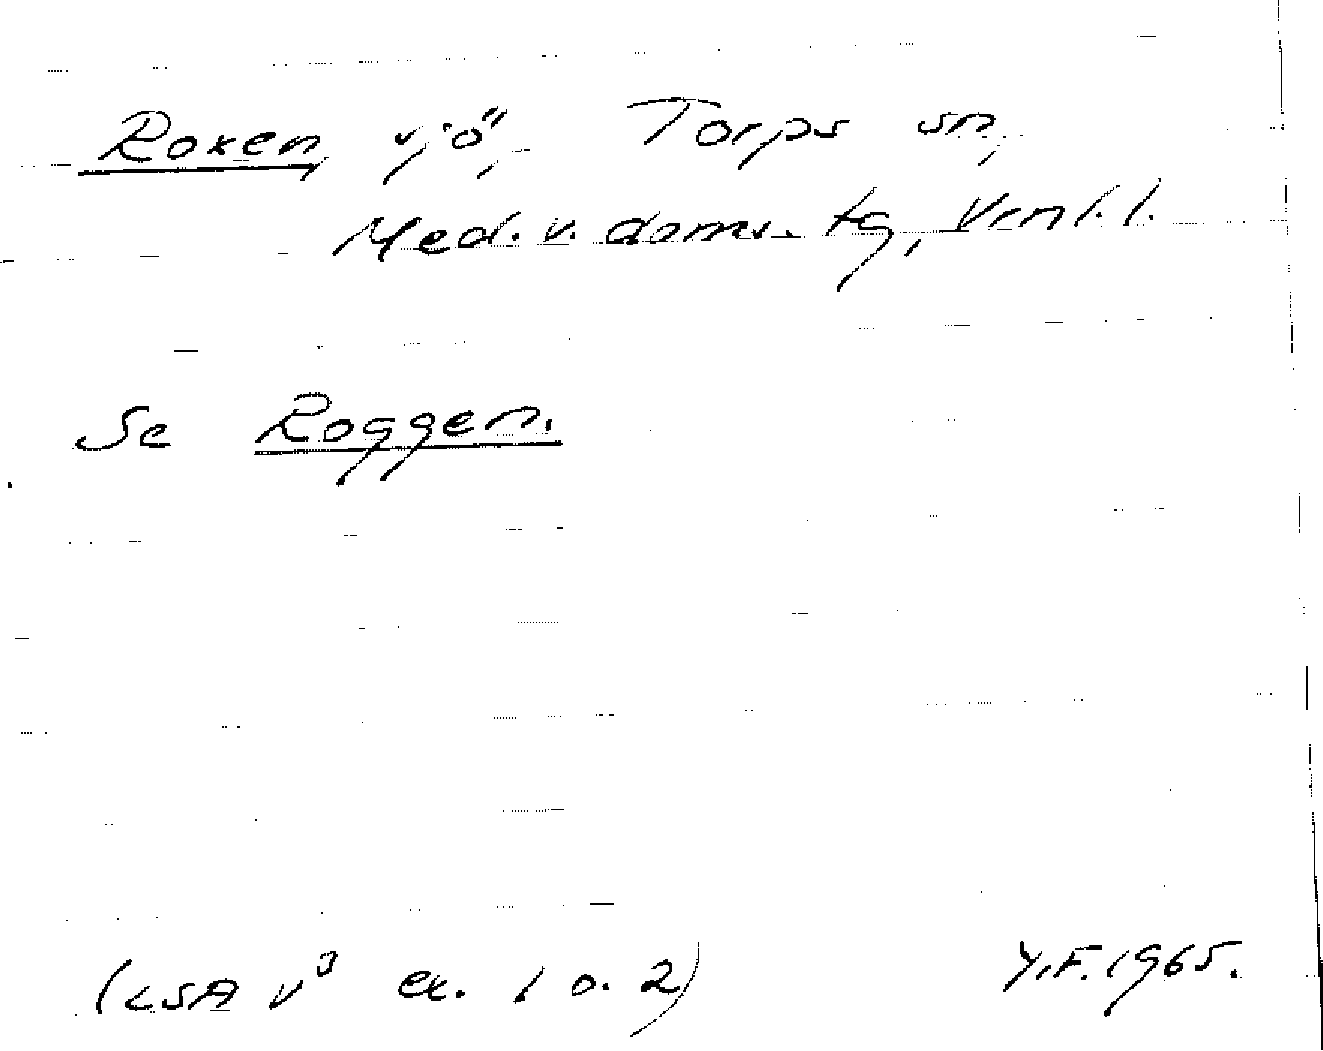 Roxen, sjö, Torps sn,
Med. v. doms. tg, Vrnl. l.
Se Roggen.
(LSA V³ ex. 1 o. 2) Y.F. 1965.